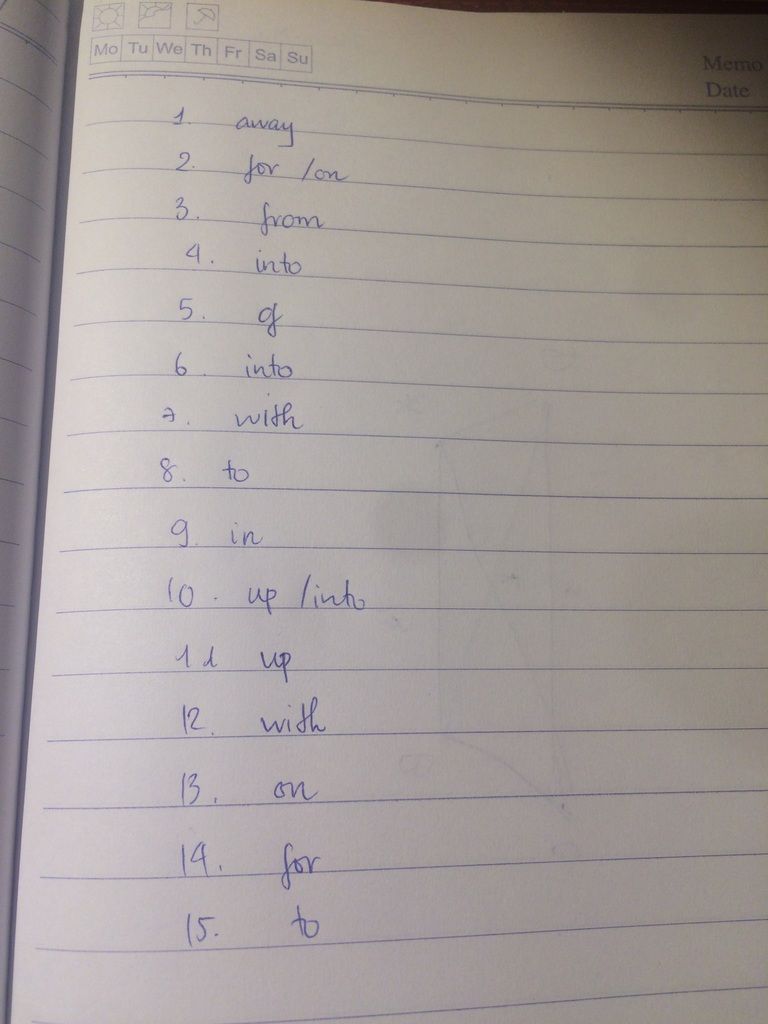 Mo Tu We Th Fr Sa Su
Memo
Date
1. away
2. for /on
3. from
4. into
5. of
6. into
7. with
8. to
9. in
10. up /into
11 up
12. with
13. on
14. for
15. to